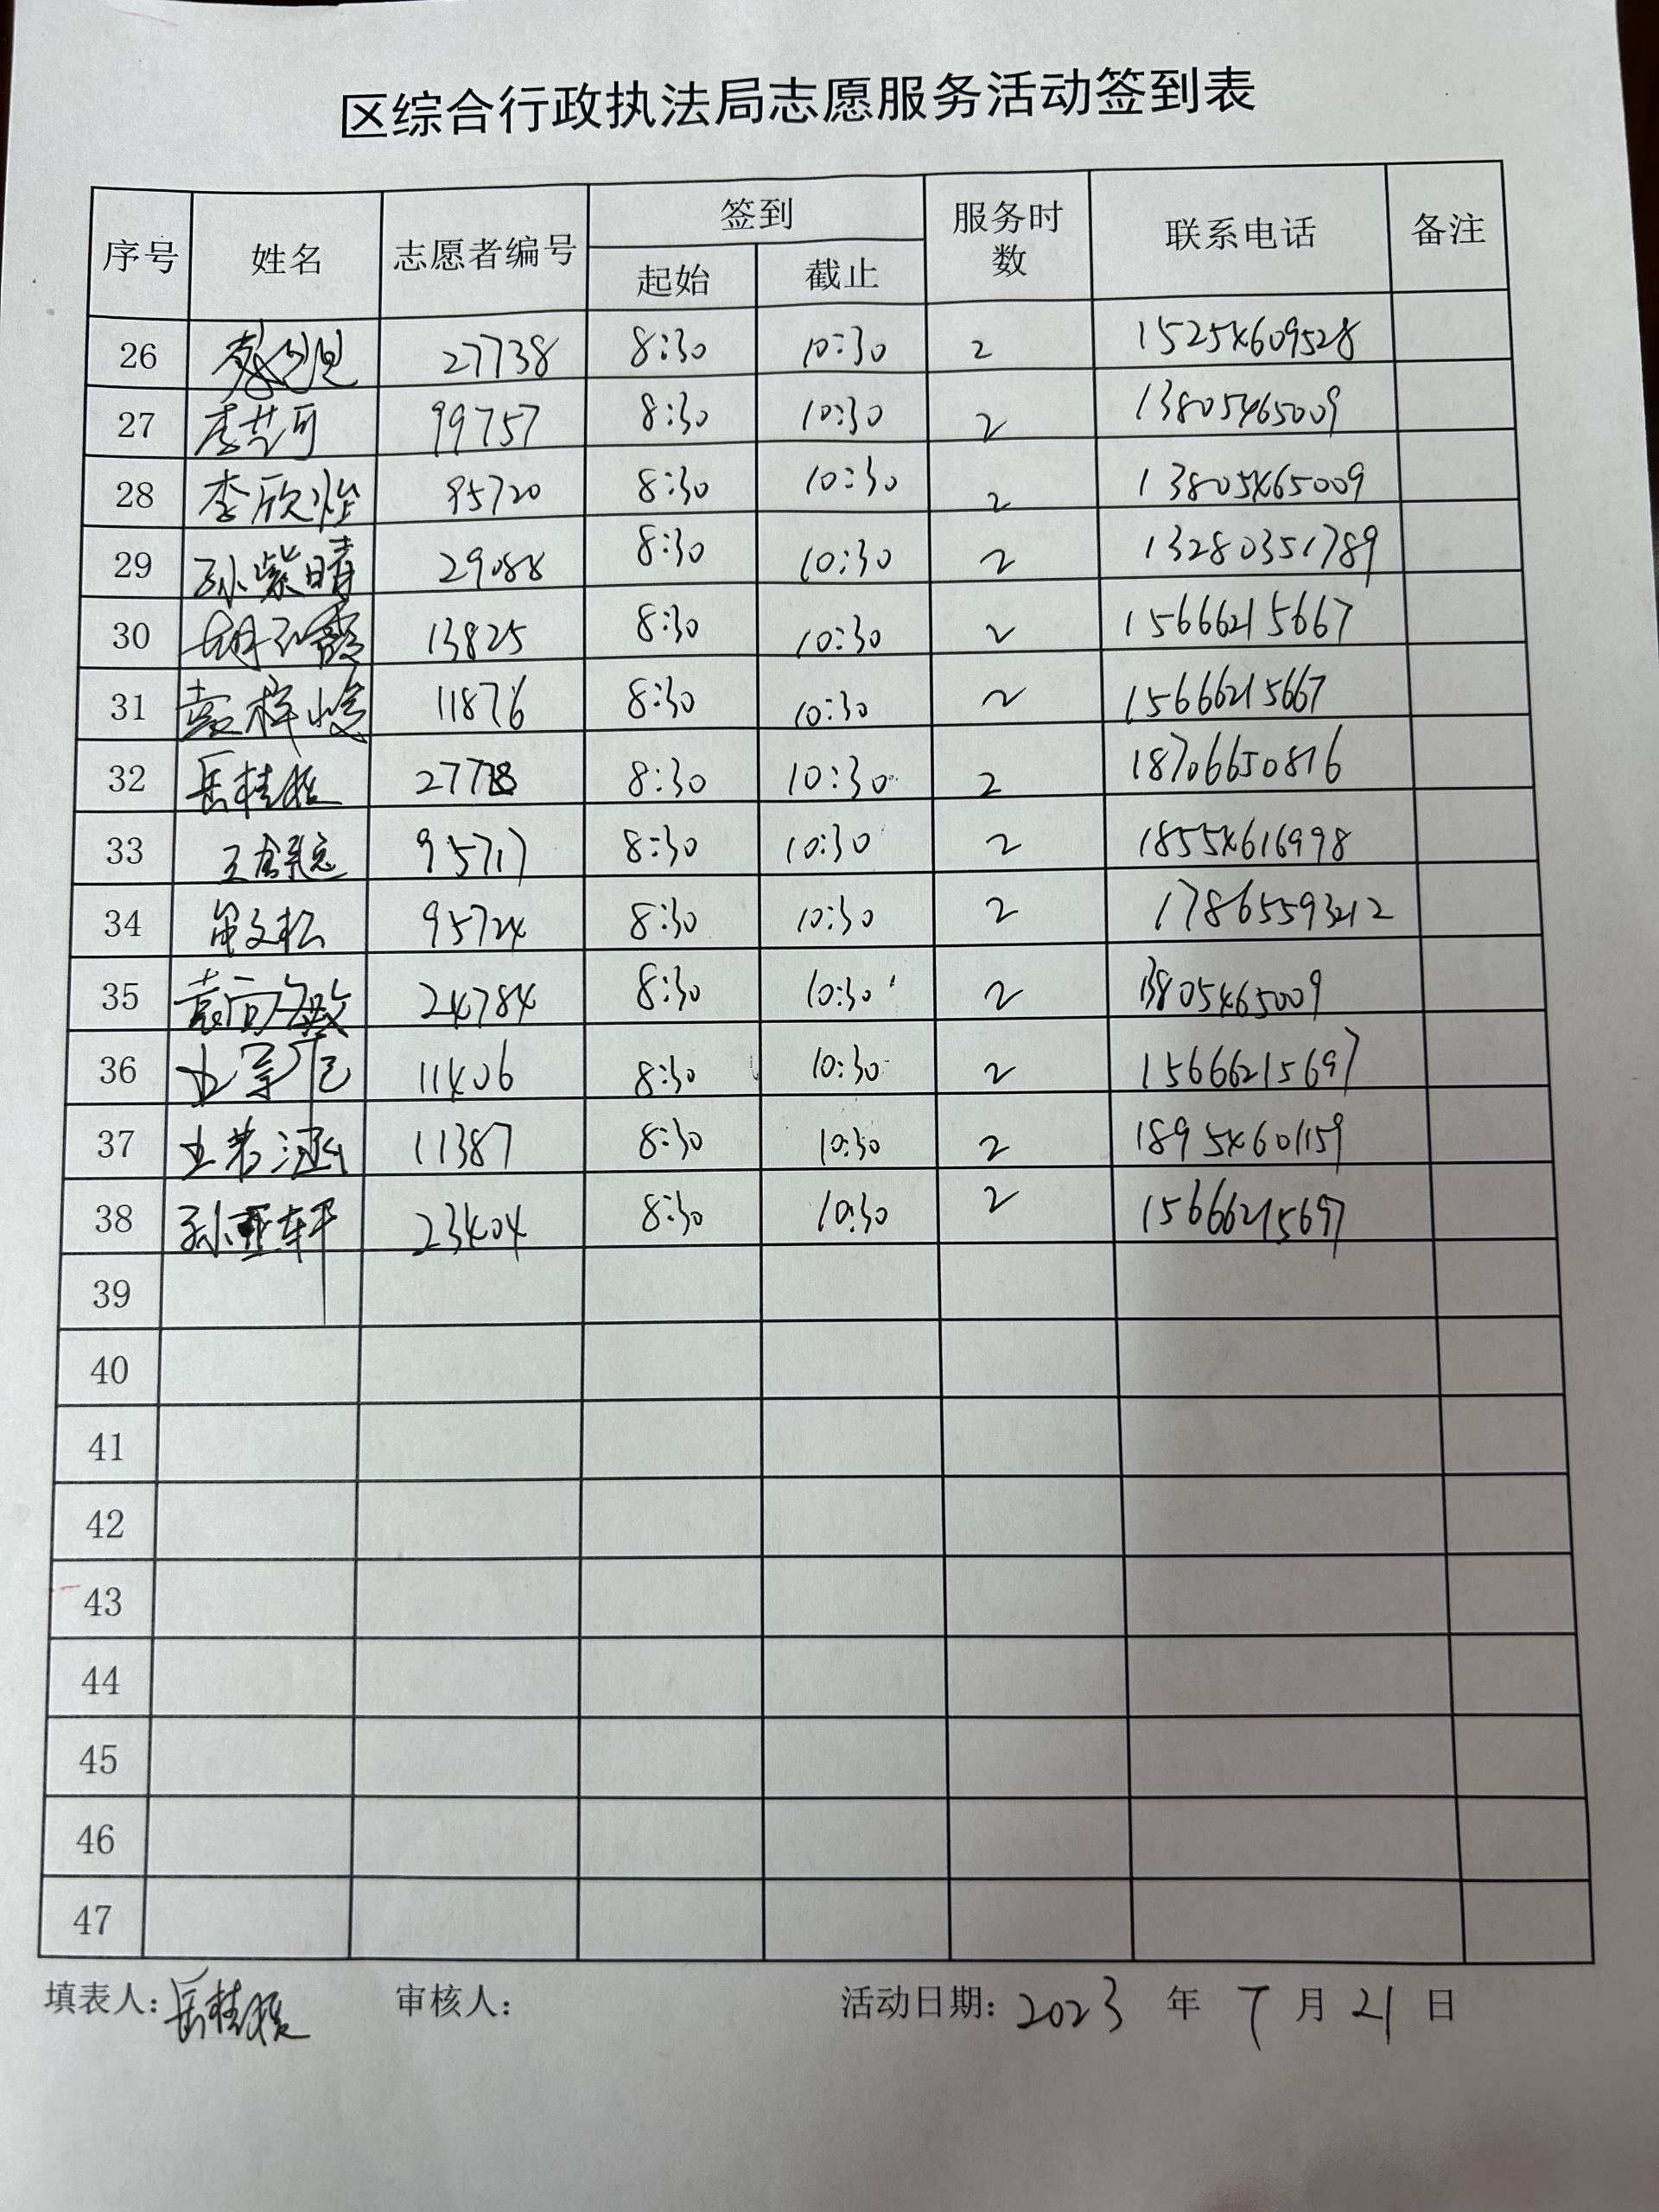 区综合行政执法局志愿服务活动签到表
序号 姓名 志愿者编号 签到 服务时数 联系电话 备注
起始 截止
26 27738 8:30 10:30 2 15254609528
27 李艺可 99757 8:30 10:30 2 13805465009
28 李欣怡 95720 8:30 10:30 2 13805465009
29 孙紫晴 29088 8:30 10:30 2 13280351789
30 13825 8:30 10:30 2 15666215667
31 11876 8:30 10:30 2 15666215667
32 岳桂枝 8:30 10:30 2 18706650816
33 95717 8:30 10:30 2 18554616998
34 95724 8:30 10:30 2 17865593212
35 24784 8:30 10:30 2 13805465009
36 11406 8:30 10:30 2 15666215697
37 王若涵 11387 8:30 10:30 2 18954601159
38 孙亚轩 23404 8:30 10:30 2 15666215697
39
40
41
42
43
44
45
46
47
填表人：岳桂枝 审核人： 活动日期：2023 年 7 月 21 日